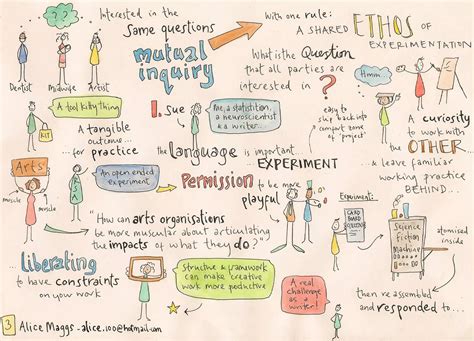 Interested in the
same questions
mutual
inquiry
With one rule:
A SHARED ETHOS OF
EXPERIMENTATION
What is the Question
that all parties are
interested in ?
Dentist
Midwife
Artist
Hmm...
A tool kitty thing
KIT
A tangible
outcome...
for practice
1. Sue
Me, a statistition,
a neuroscientist
& a writer...
easy to
slip back into
comfort zone
of 'project'
A curiosity
to work with
the OTHER
& leave familiar
working practice
BEHIND...
the language is important
EXPERIMENT
Permission to be more
playful
Arts
muscle
muscle
An open ended
experiment
"How can arts organisations
be more muscular about articulating
the impacts of what they do?"
Experiment:
CARD
BOARD
Science
Fiction
Machine
atomised
inside
then reassembled
and responded to...
liberating
to have constraints
on your work
Structure & framework
can make creative
work more productive
A real
challenge
as a
writer!
3 Alice Maggs - alice.100@hotmail.com